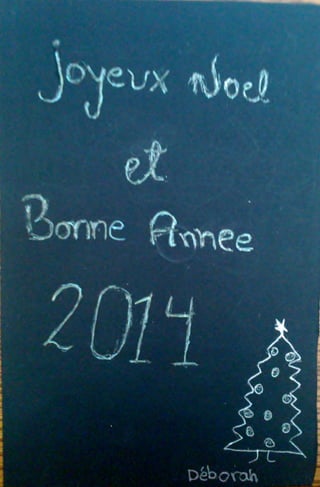 Joyeux Noel
et
Bonne Annee
2014
Déborah